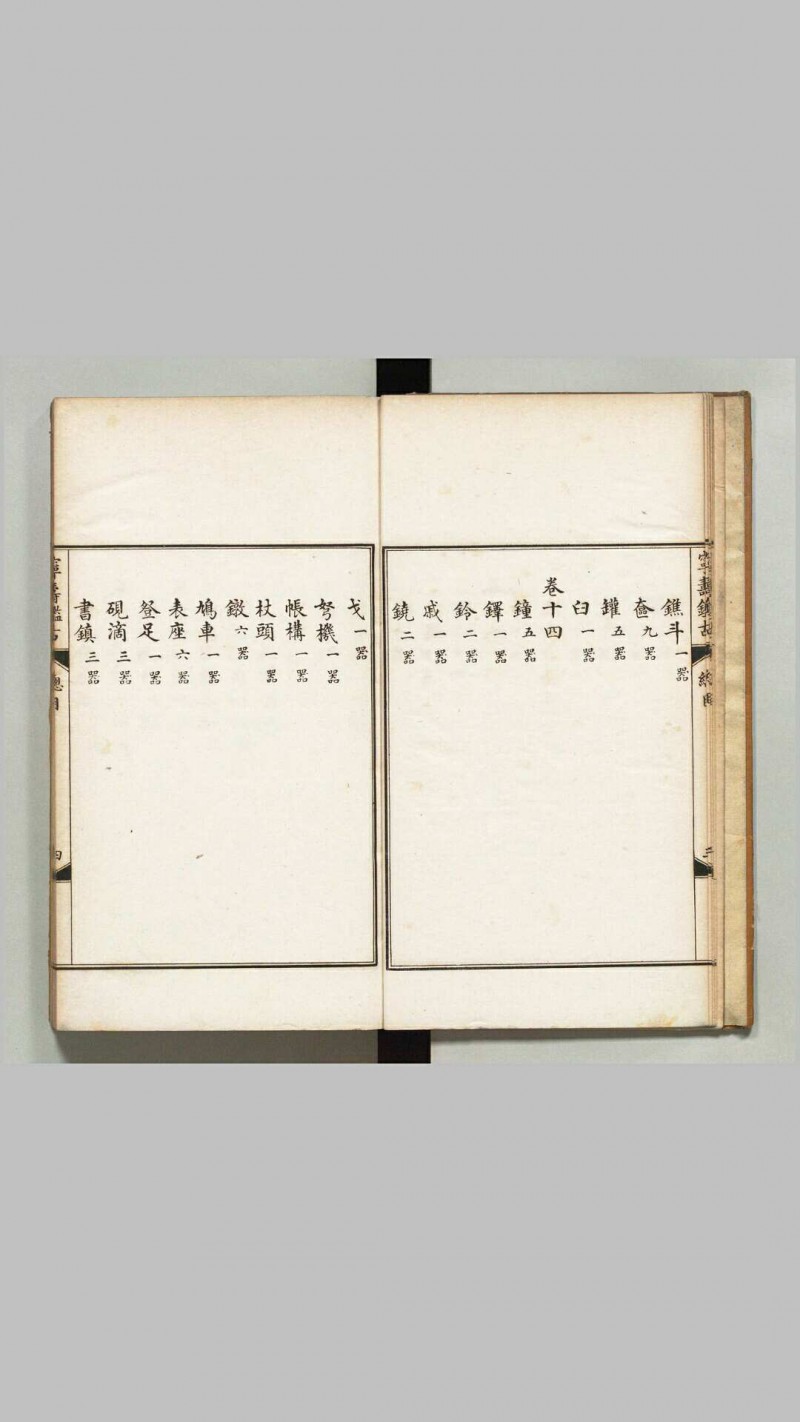 寧壽鑑古
總目
鐎斗一器
奩九器
罐五器
臼一器
卷十四
鐘五器
鐸一器
鈴二器
戚一器
鐃二器
戈一器
弩機一器
帳構一器
杖頭一器
鐓六器
鳩車一器
表座六器
豋足一器
硯滴三器
書鎮三器
寧壽鑑古
總目
四